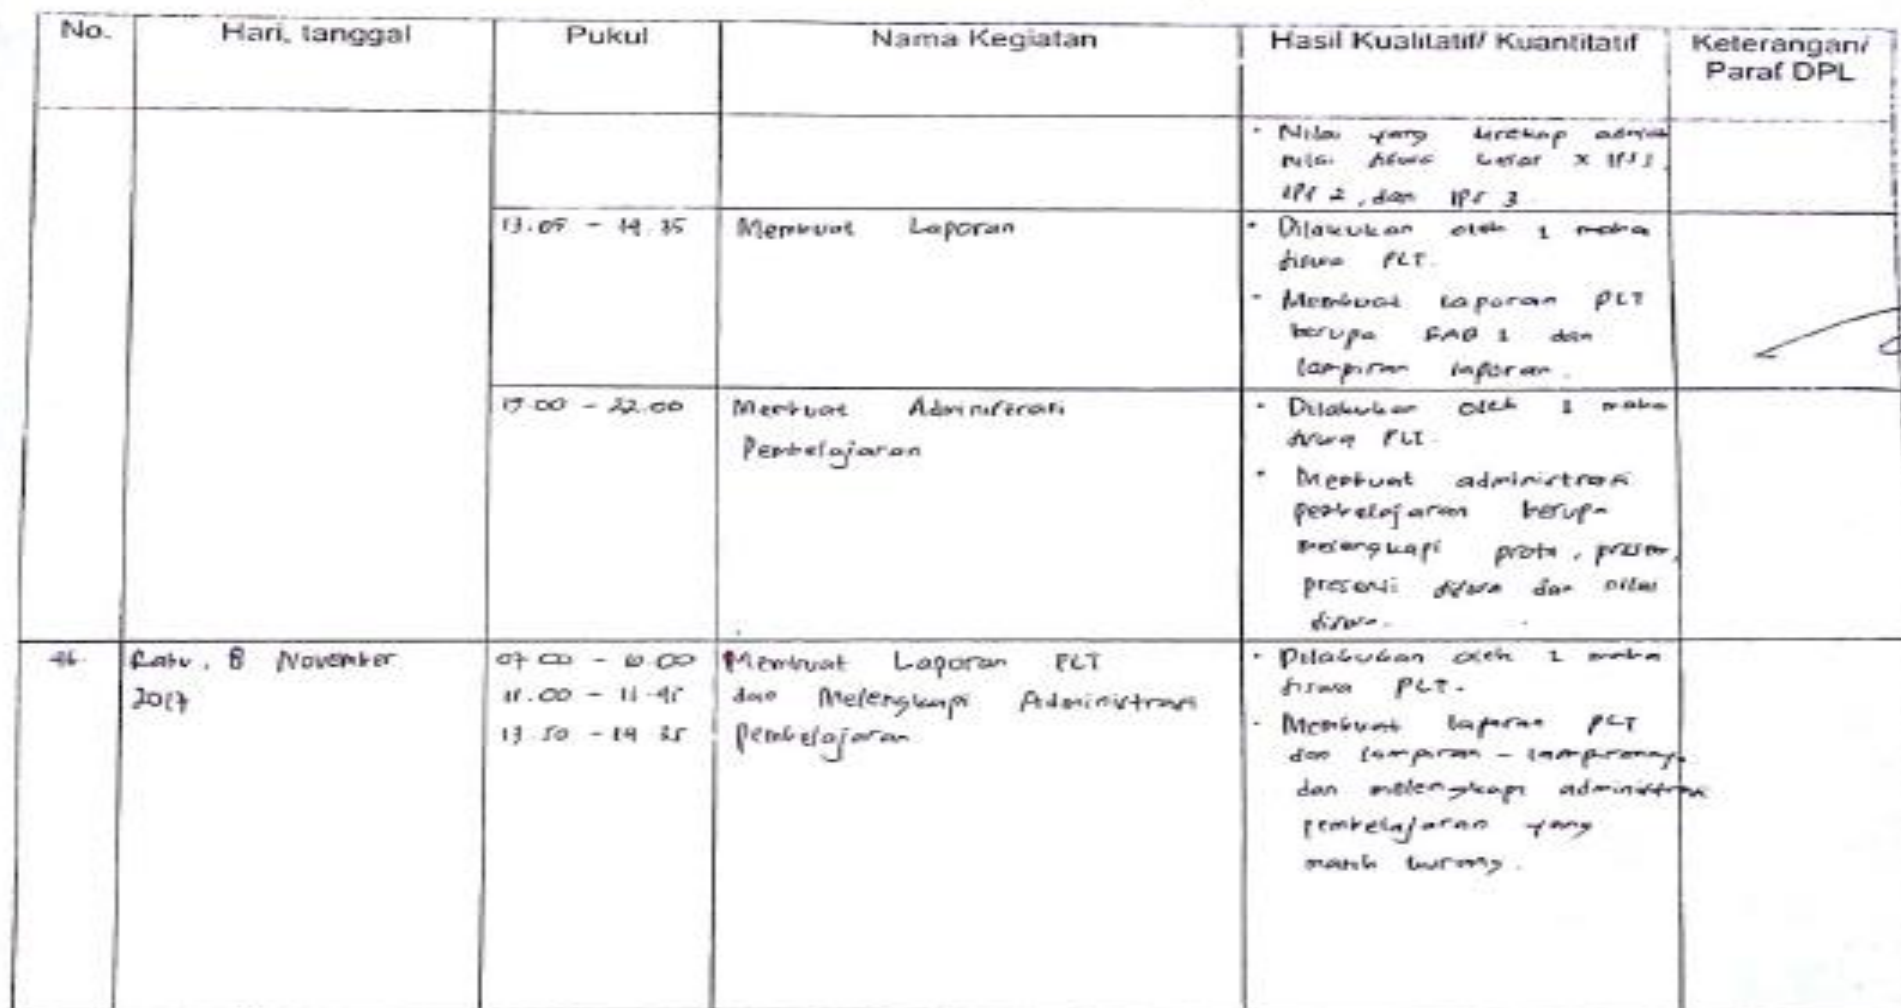 No. Hari, tanggal Pukul Nama Kegiatan Hasil Kualitatif/ Kuantitatif Keterangan/
Paraf DPL
- Nilai yang direkap adalah
nilai siswa kelas X IPS 1,
IPS 2, dan IPS 3.
13.05 - 14.35 Membuat Laporan - Dilakukan oleh 1 maha
siswa PLT.
- Membuat laporan PLT
berupa BAB 1 dan
lampiran laporan.
19.00 - 22.00 Membuat Administrasi - Dilakukan oleh 1 maha
Pembelajaran siswa PLT.
- Membuat administrasi
pembelajaran berupa
melengkapi prota, prosem,
presensi siswa dan nilai
siswa.
46. Rabu, 8 November 07.00 - 10.00 Membuat Laporan PLT - Dilakukan oleh 1 maha
2017 11.00 - 11.45 dan Melengkapi Administrasi siswa PLT.
13.50 - 14.35 pembelajaran - Membuat laporan PLT
dan lampiran - lampirannya
dan melengkapi administrasi
pembelajaran yang
masih kurang.